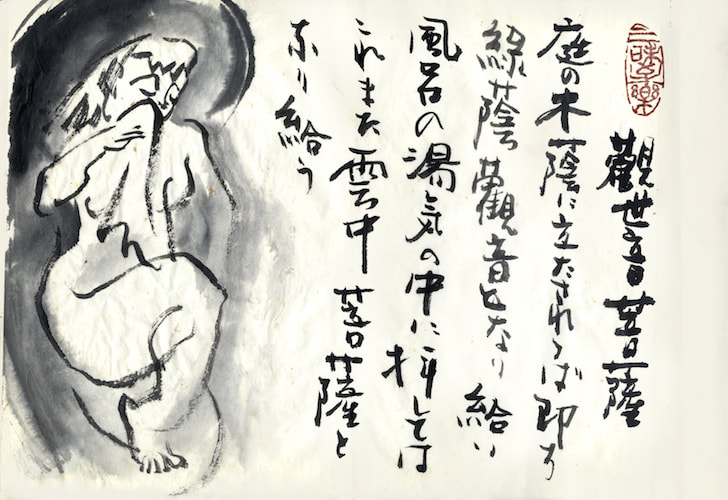 觀世音菩薩
庭の木蔭に立たされば即ち
緑蔭觀音となり給い
風呂の湯気の中に拝しては
これまた雲中菩薩と
なり給う